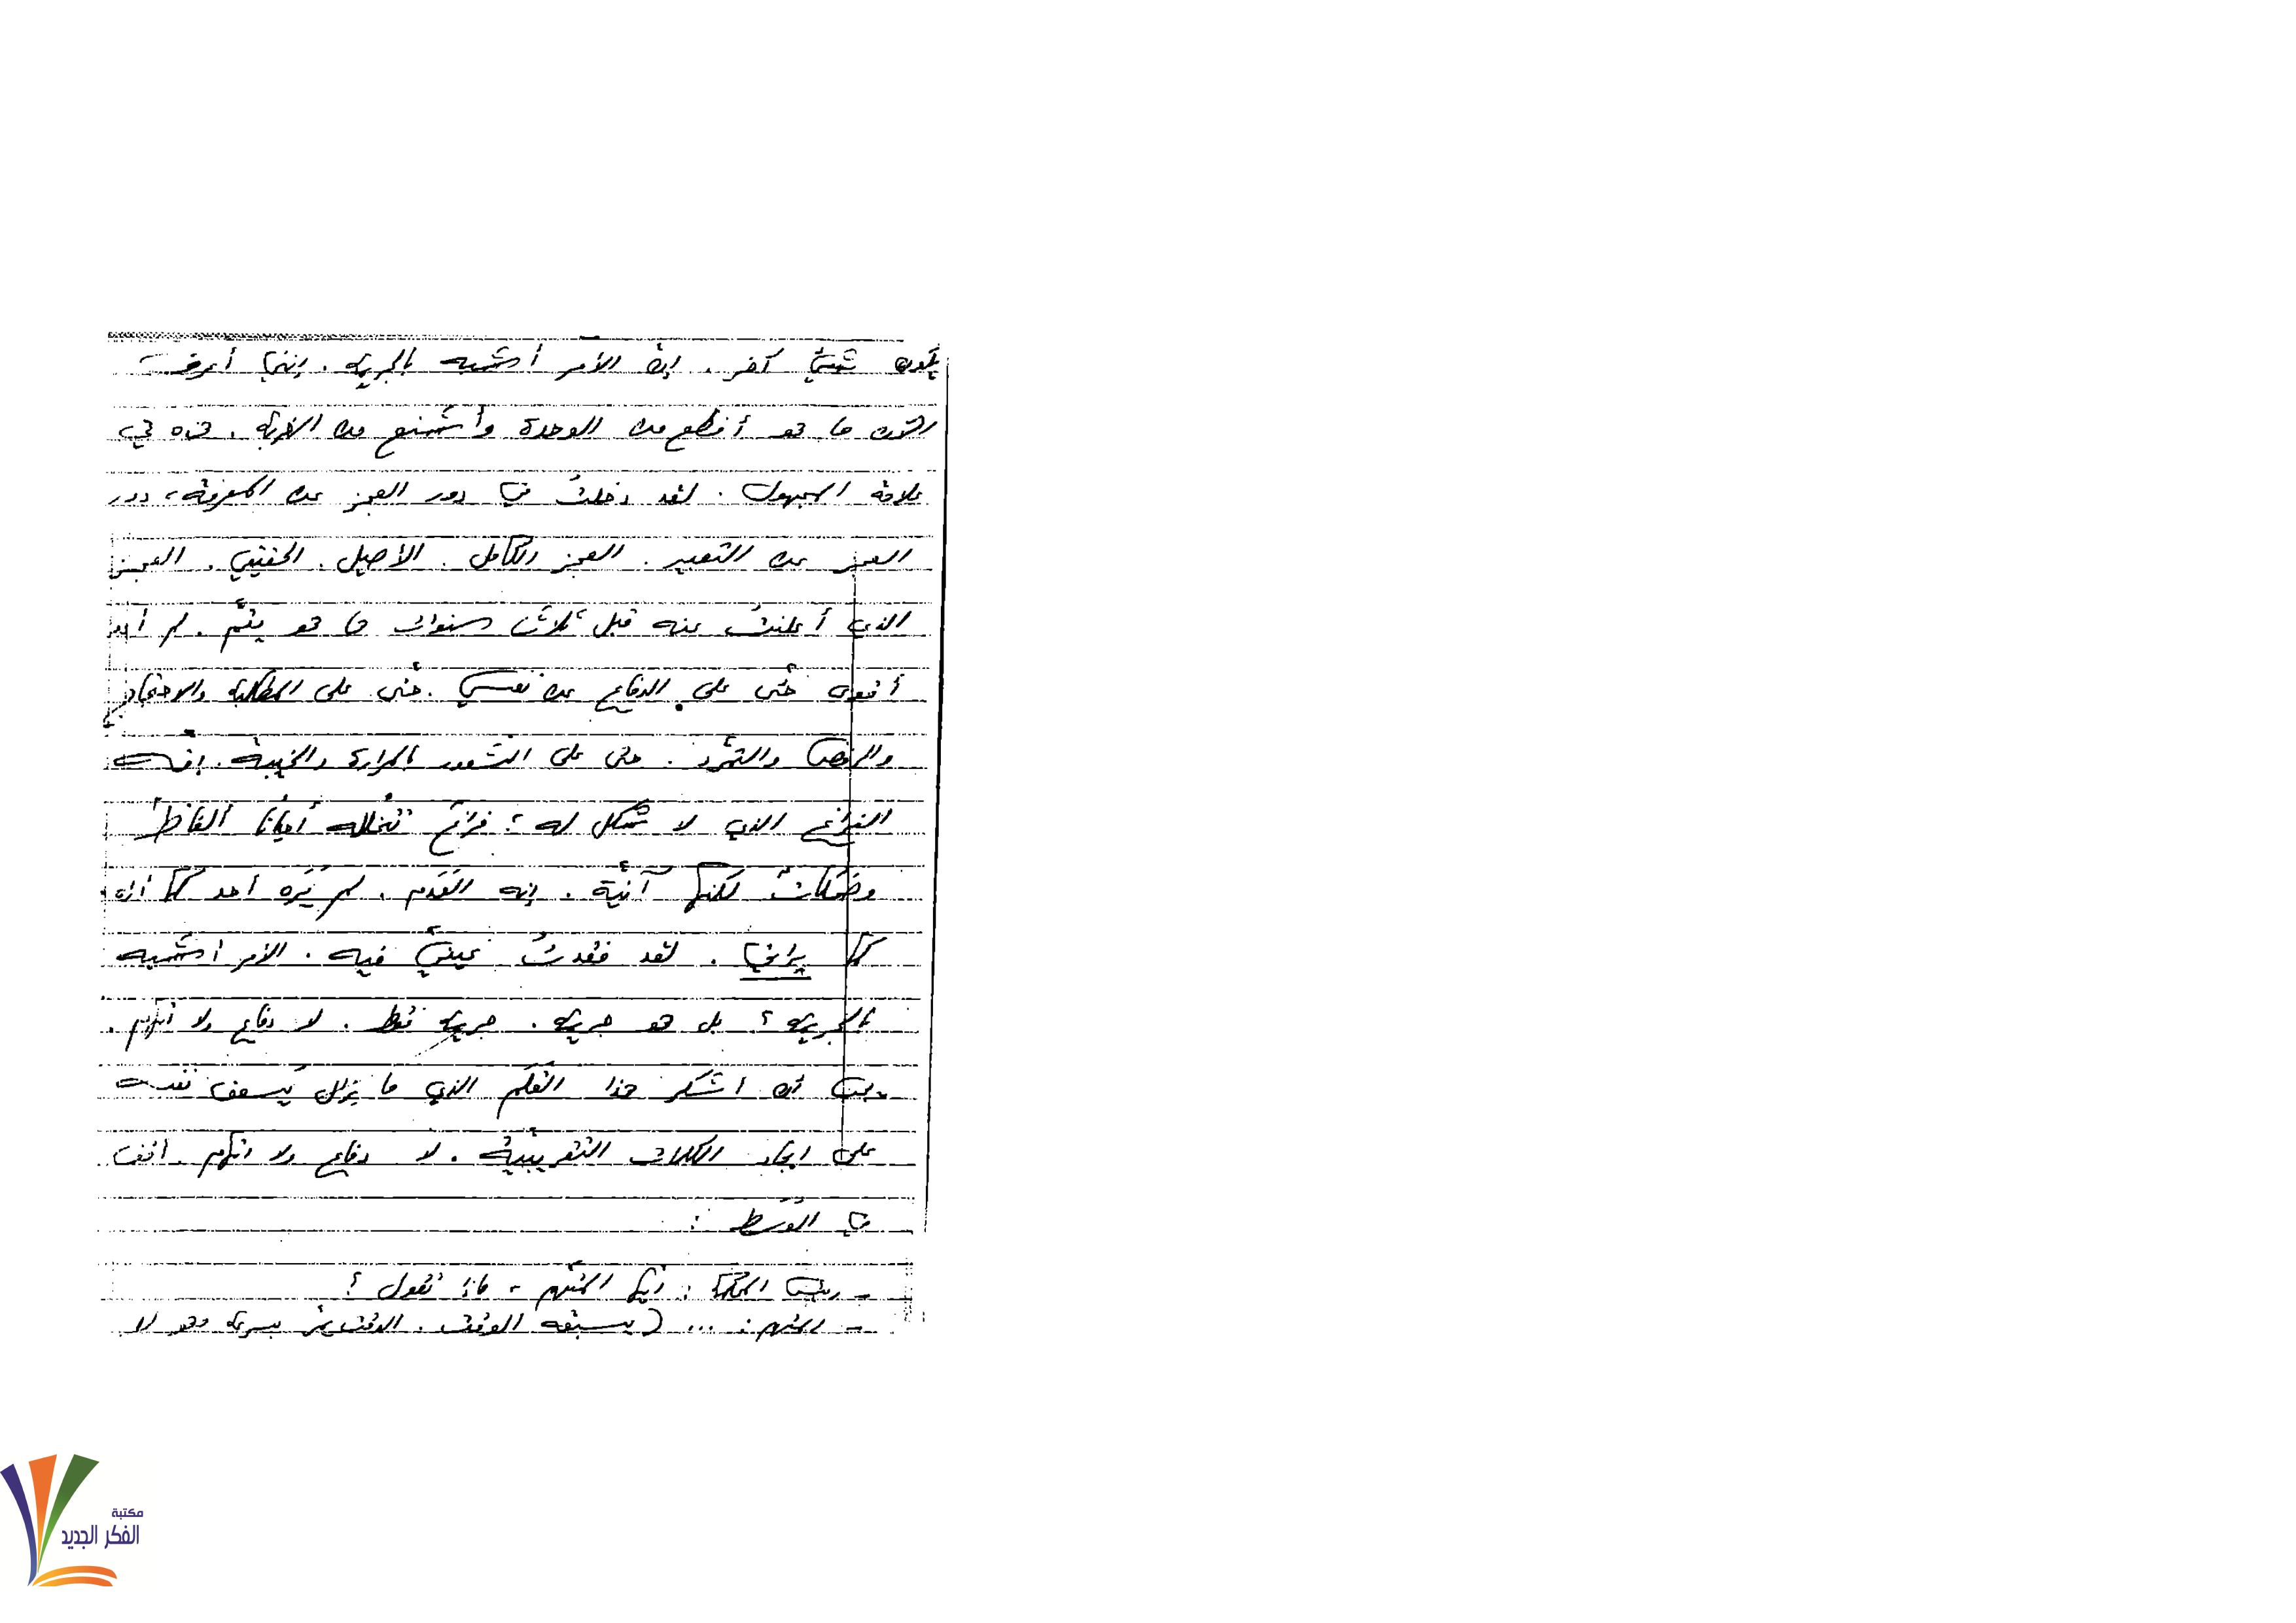 يكون شيئي آخر. إن الأمر أشبه بالجريمة. إنني أعرف
الآن ما هو أفظع من الوحدة وأشنع من الغربة. هذه هي
علامة المجهول. لقد دخلتُ في دور العجز عن المعرفة، دور
العجز عن التعبير. العجز الكامل. الأصيل. الحقيقي. العجز
الذي أعلنتُ عنه قبل ثلاث سنوات ها هو يتمّ. لم أعد
أقوى حتى على الدفاع عن نفسي. حتى على المطالبة والاحتجاج
والرفض والتمرّد. حتى على الشعور بالمرارة والخيبة. إنه
الفراغ الذي لا شكل له؛ فراغ تتخلله أحيانًا ألفاظ
وضحكاتٌ لكنها آنيّة. إنه العَدَم. لم يَرَه أحد كما أراه
كما يراني. لقد فقدتُ عينيّ فيه. الأمر أشبه
بالجريمة؟ بل هو جريمة. جريمة فقط. لا دفاع ولا اتهام.
يجب أن أشكر هذا القلم الذي ما يزال يُسعف نفسه
على ايجاد الكلمات التقريبيّة. لا دفاع ولا اتهام. أقف
في الوَسَط:
- رئيس المحكمة: أيها المتّهم، ماذا تقول؟
- المتهم: ... (يسبقه الوقت. الوقت يمرّ بسرعة وهو لا
مكتبة
الفكر الجديد